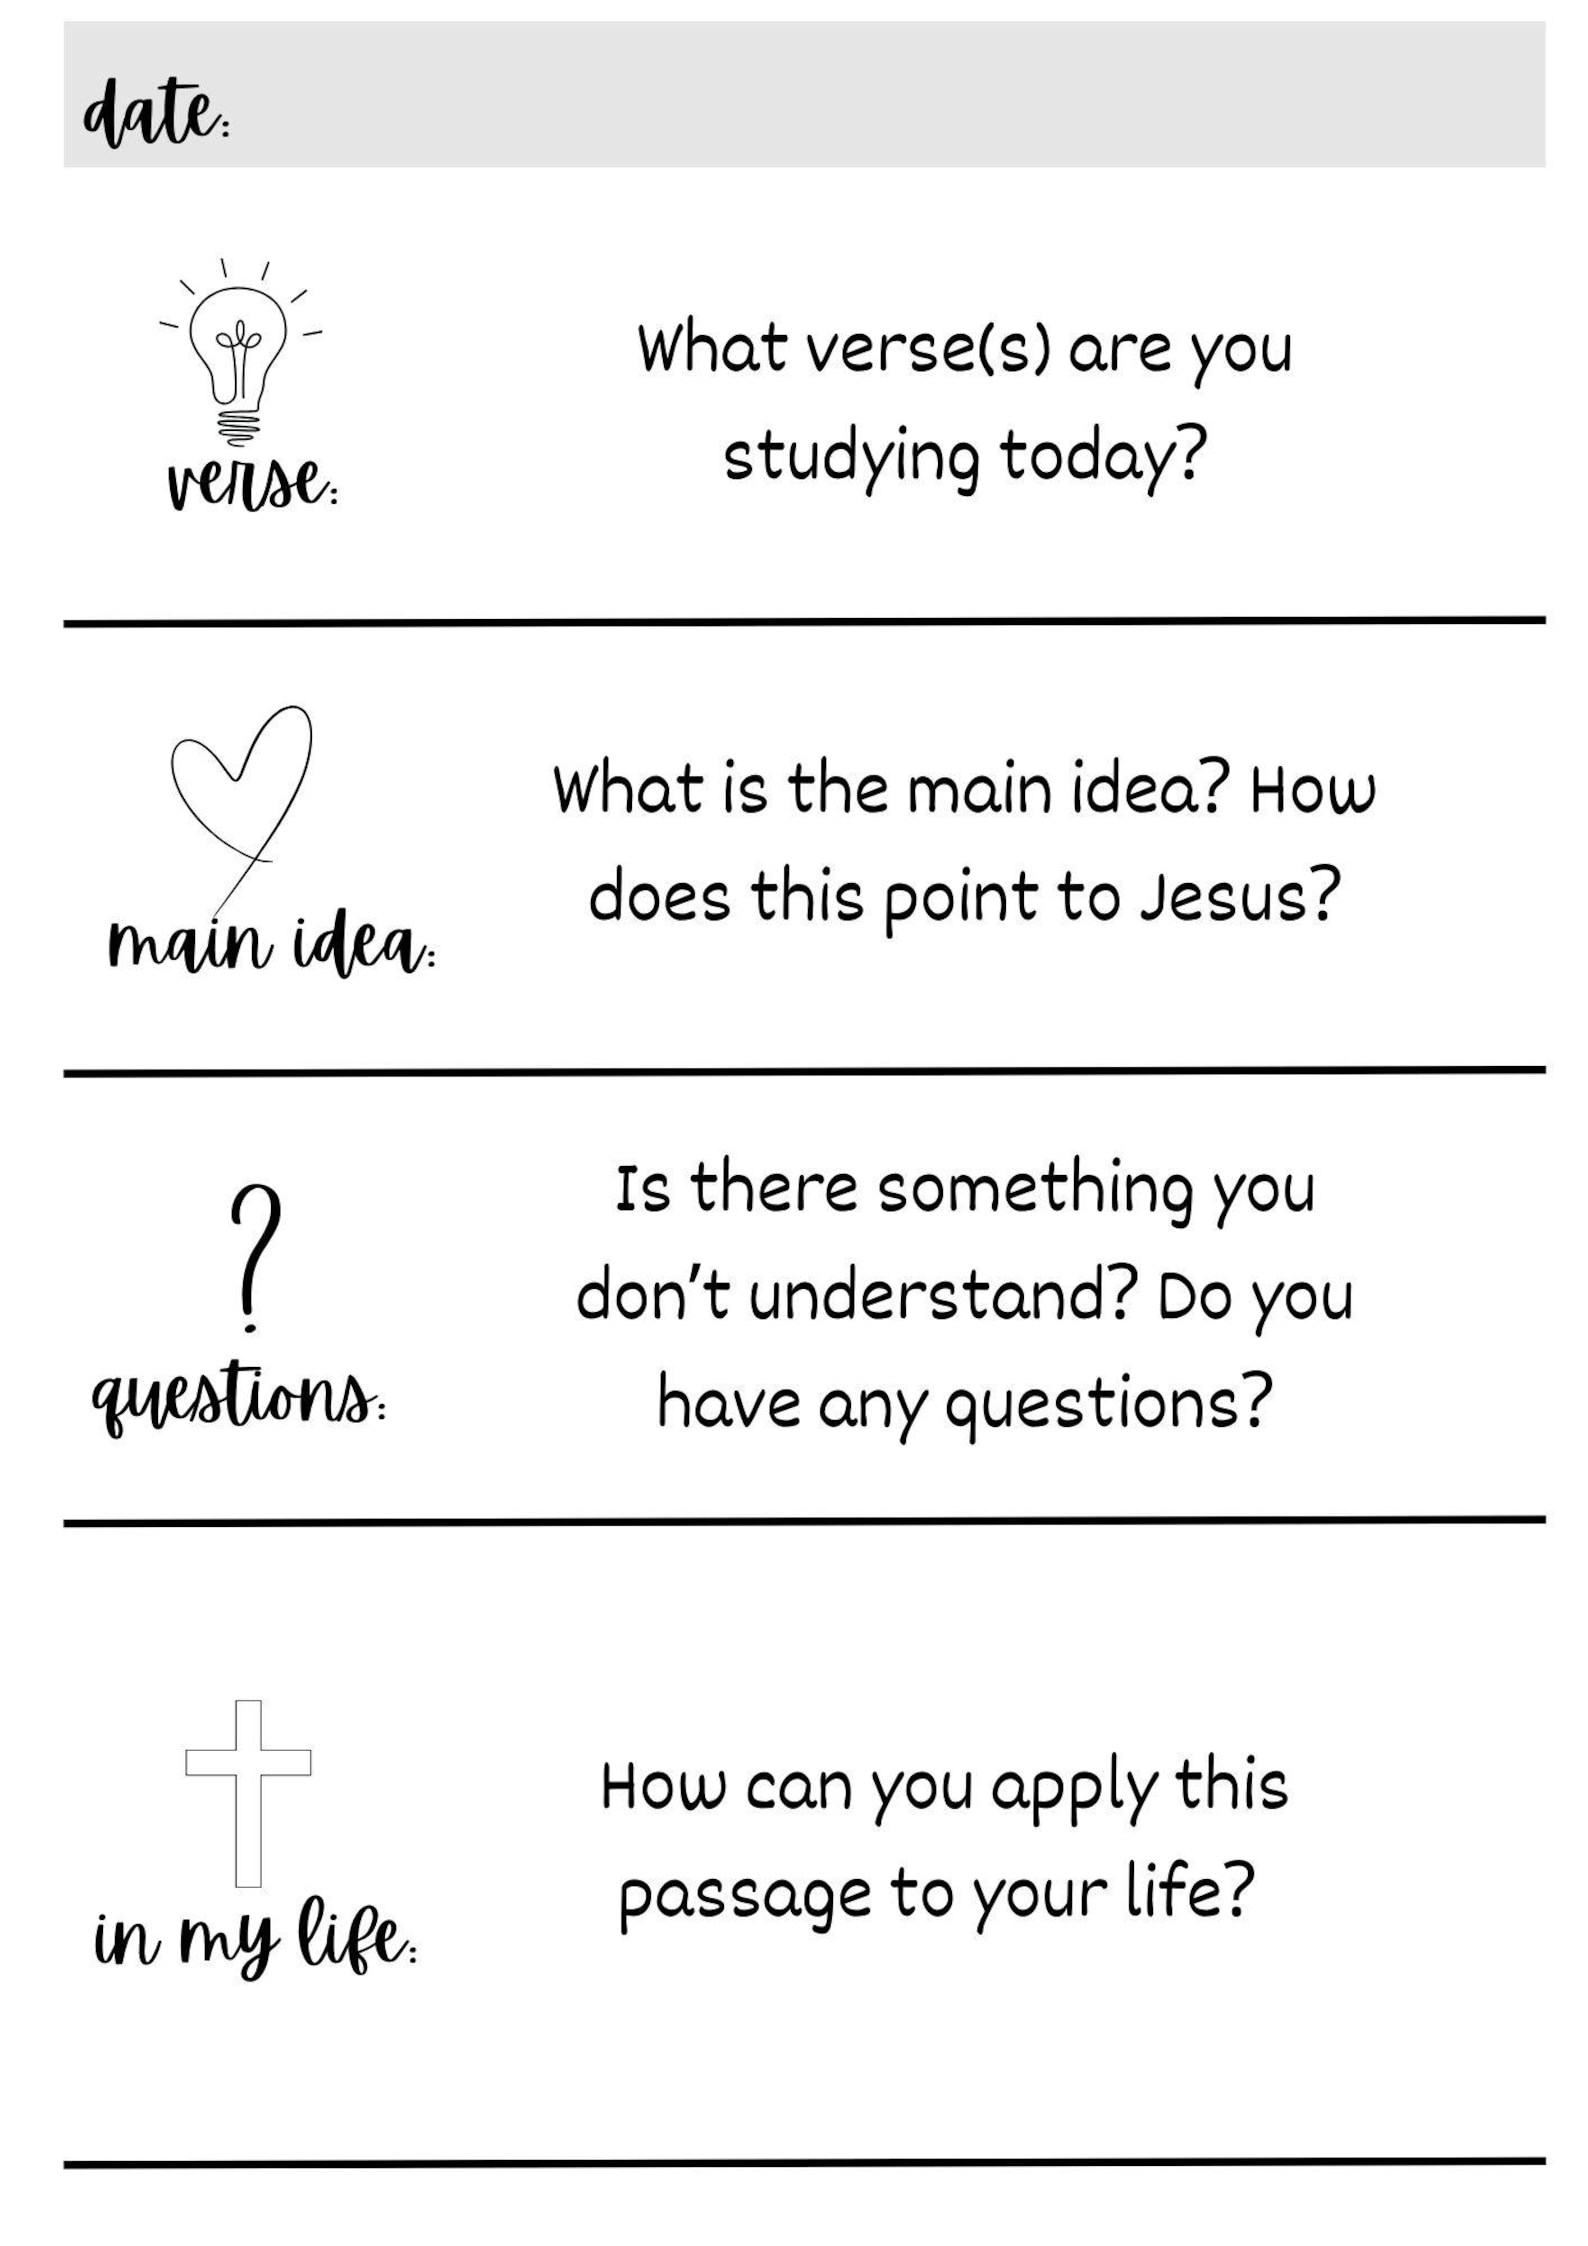 date:
What verse(s) are you
studying today?
verse:
What is the main idea? How
does this point to Jesus?
main idea:
Is there something you
don't understand? Do you
have any questions?
questions:
How can you apply this
passage to your life?
in my life: